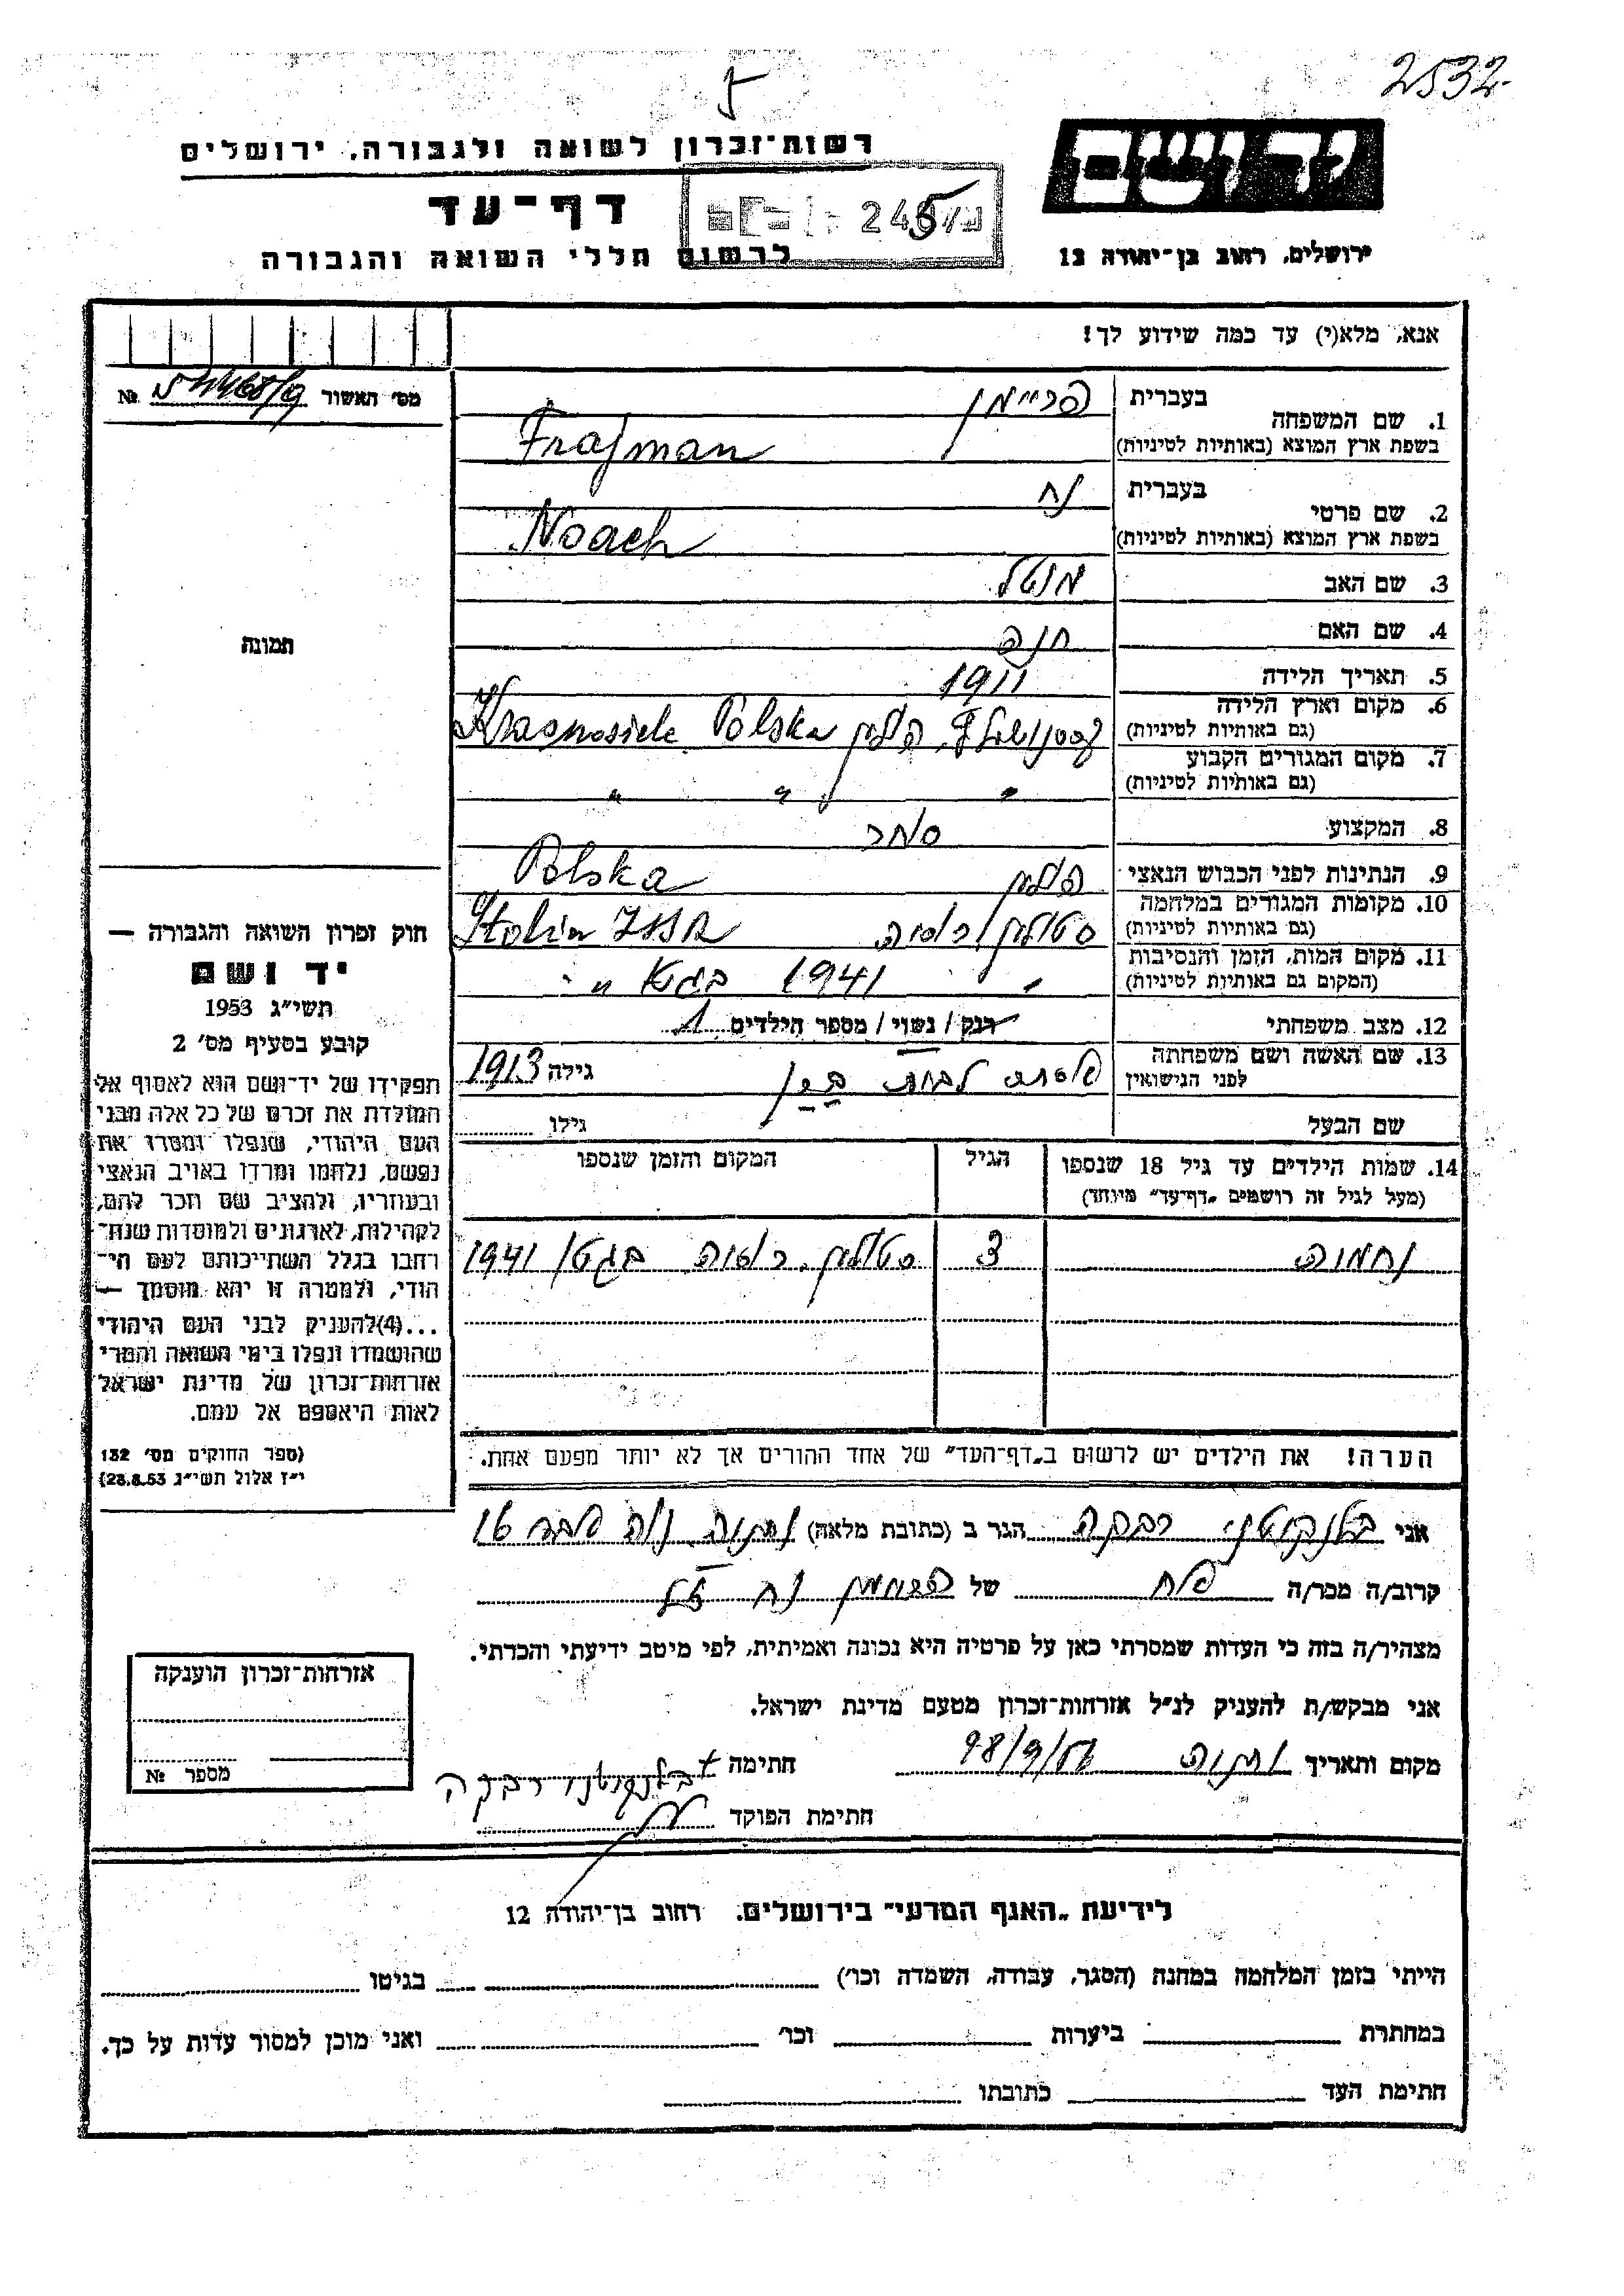 2532
רשות־זכרון לשואה ולגבורה, ירושלים
יד ושם
דף־עד
לרשום חללי השואה והגבורה
ירושלים, רחוב בן־יהודה 12
אנא, מלא(י) עד כמה שידוע לך!
מס' האשור №
1. שם המשפחה
בעברית פריימן
בשפת ארץ המוצא (באותיות לטיניות) Frajman
2. שם פרטי
בעברית נח
בשפת ארץ המוצא (באותיות לטיניות) Noach
3. שם האב מנטל
4. שם האם חנה
5. תאריך הלידה 1911
6. מקום וארץ הלידה
(גם באותיות לטיניות) פולין Krasnosielc Polska
7. מקום המגורים הקבוע
(גם באותיות לטיניות) " " "
8. המקצוע סוחר
9. הנתינות לפני הכבוש הנאצי פולין Polska
10. מקומות המגורים במלחמה
(גם באותיות לטיניות) סטולין רוסיה Stolin
11. מקום המות, הזמן והנסיבות
(המקום גם באותיות לטיניות) " 1941 בגטו "
12. מצב משפחתי רנק / נשוי / מספר הילדים 1
13. שם האשה ושם משפחתה
לפני הנישואין לבית גילה 1913
שם הבעל גילו
14. שמות הילדים עד גיל 18 שנספו
(מעל לגיל זה רושמים „דף־עד" מיוחד)
הגיל
המקום והזמן שנספו
נחמה 3 סטולין, רוסיה בגטו 1941
הערה! את הילדים יש לרשום ב„דף־העד" של אחד ההורים אך לא יותר מפעם אחת.
תמונה
חוק זכרון השואה והגבורה —
יד ושם
תשי"ג 1953
קובע בסעיף מס' 2
תפקידו של יד־ושם הוא לאסוף אל
המולדת את זכרם של כל אלה מבני
העם היהודי, שנפלו ומסרו את
נפשם, נלחמו ומרדו באויב הנאצי
ובעוזריו, ולהציב שם וזכר להם,
לקהילות, לארגונים ולמוסדות שנח־
רבו בגלל השתייכותם לעם הי־
הודי, ולמטרה זו יהא מוסמך —
...(4)להעניק לבני העם היהודי
שהושמדו ונפלו בימי השואה והמרי
אזרחות־זכרון של מדינת ישראל
לאות היאספם אל עמם.
(ספר החוקים מס' 132
י"ז אלול תשי"ג 28.8.53)
אני רבקה הגר ב (כתובת מלאה) נתניה
קרוב/ה מכר/ה של נח ז"ל
מצהיר/ה בזה כי העדות שמסרתי כאן על פרטיה היא נכונה ואמיתית, לפי מיטב ידיעתי והכרתי.
אני מבקש/ת להעניק לנ"ל אזרחות־זכרון מטעם מדינת ישראל.
מקום ותאריך נתניה חתימה רבקה
חתימת הפוקד
אזרחות־זכרון הוענקה
מספר №
לידיעת „האגף המדעי" בירושלים, רחוב בן־יהודה 12
הייתי בזמן המלחמה במחנה (הסגר, עבודה, השמדה וכו') בגיטו
במחתרת ביערות וכו' ואני מוכן למסור עדות על כך.
חתימת העד כתובתו